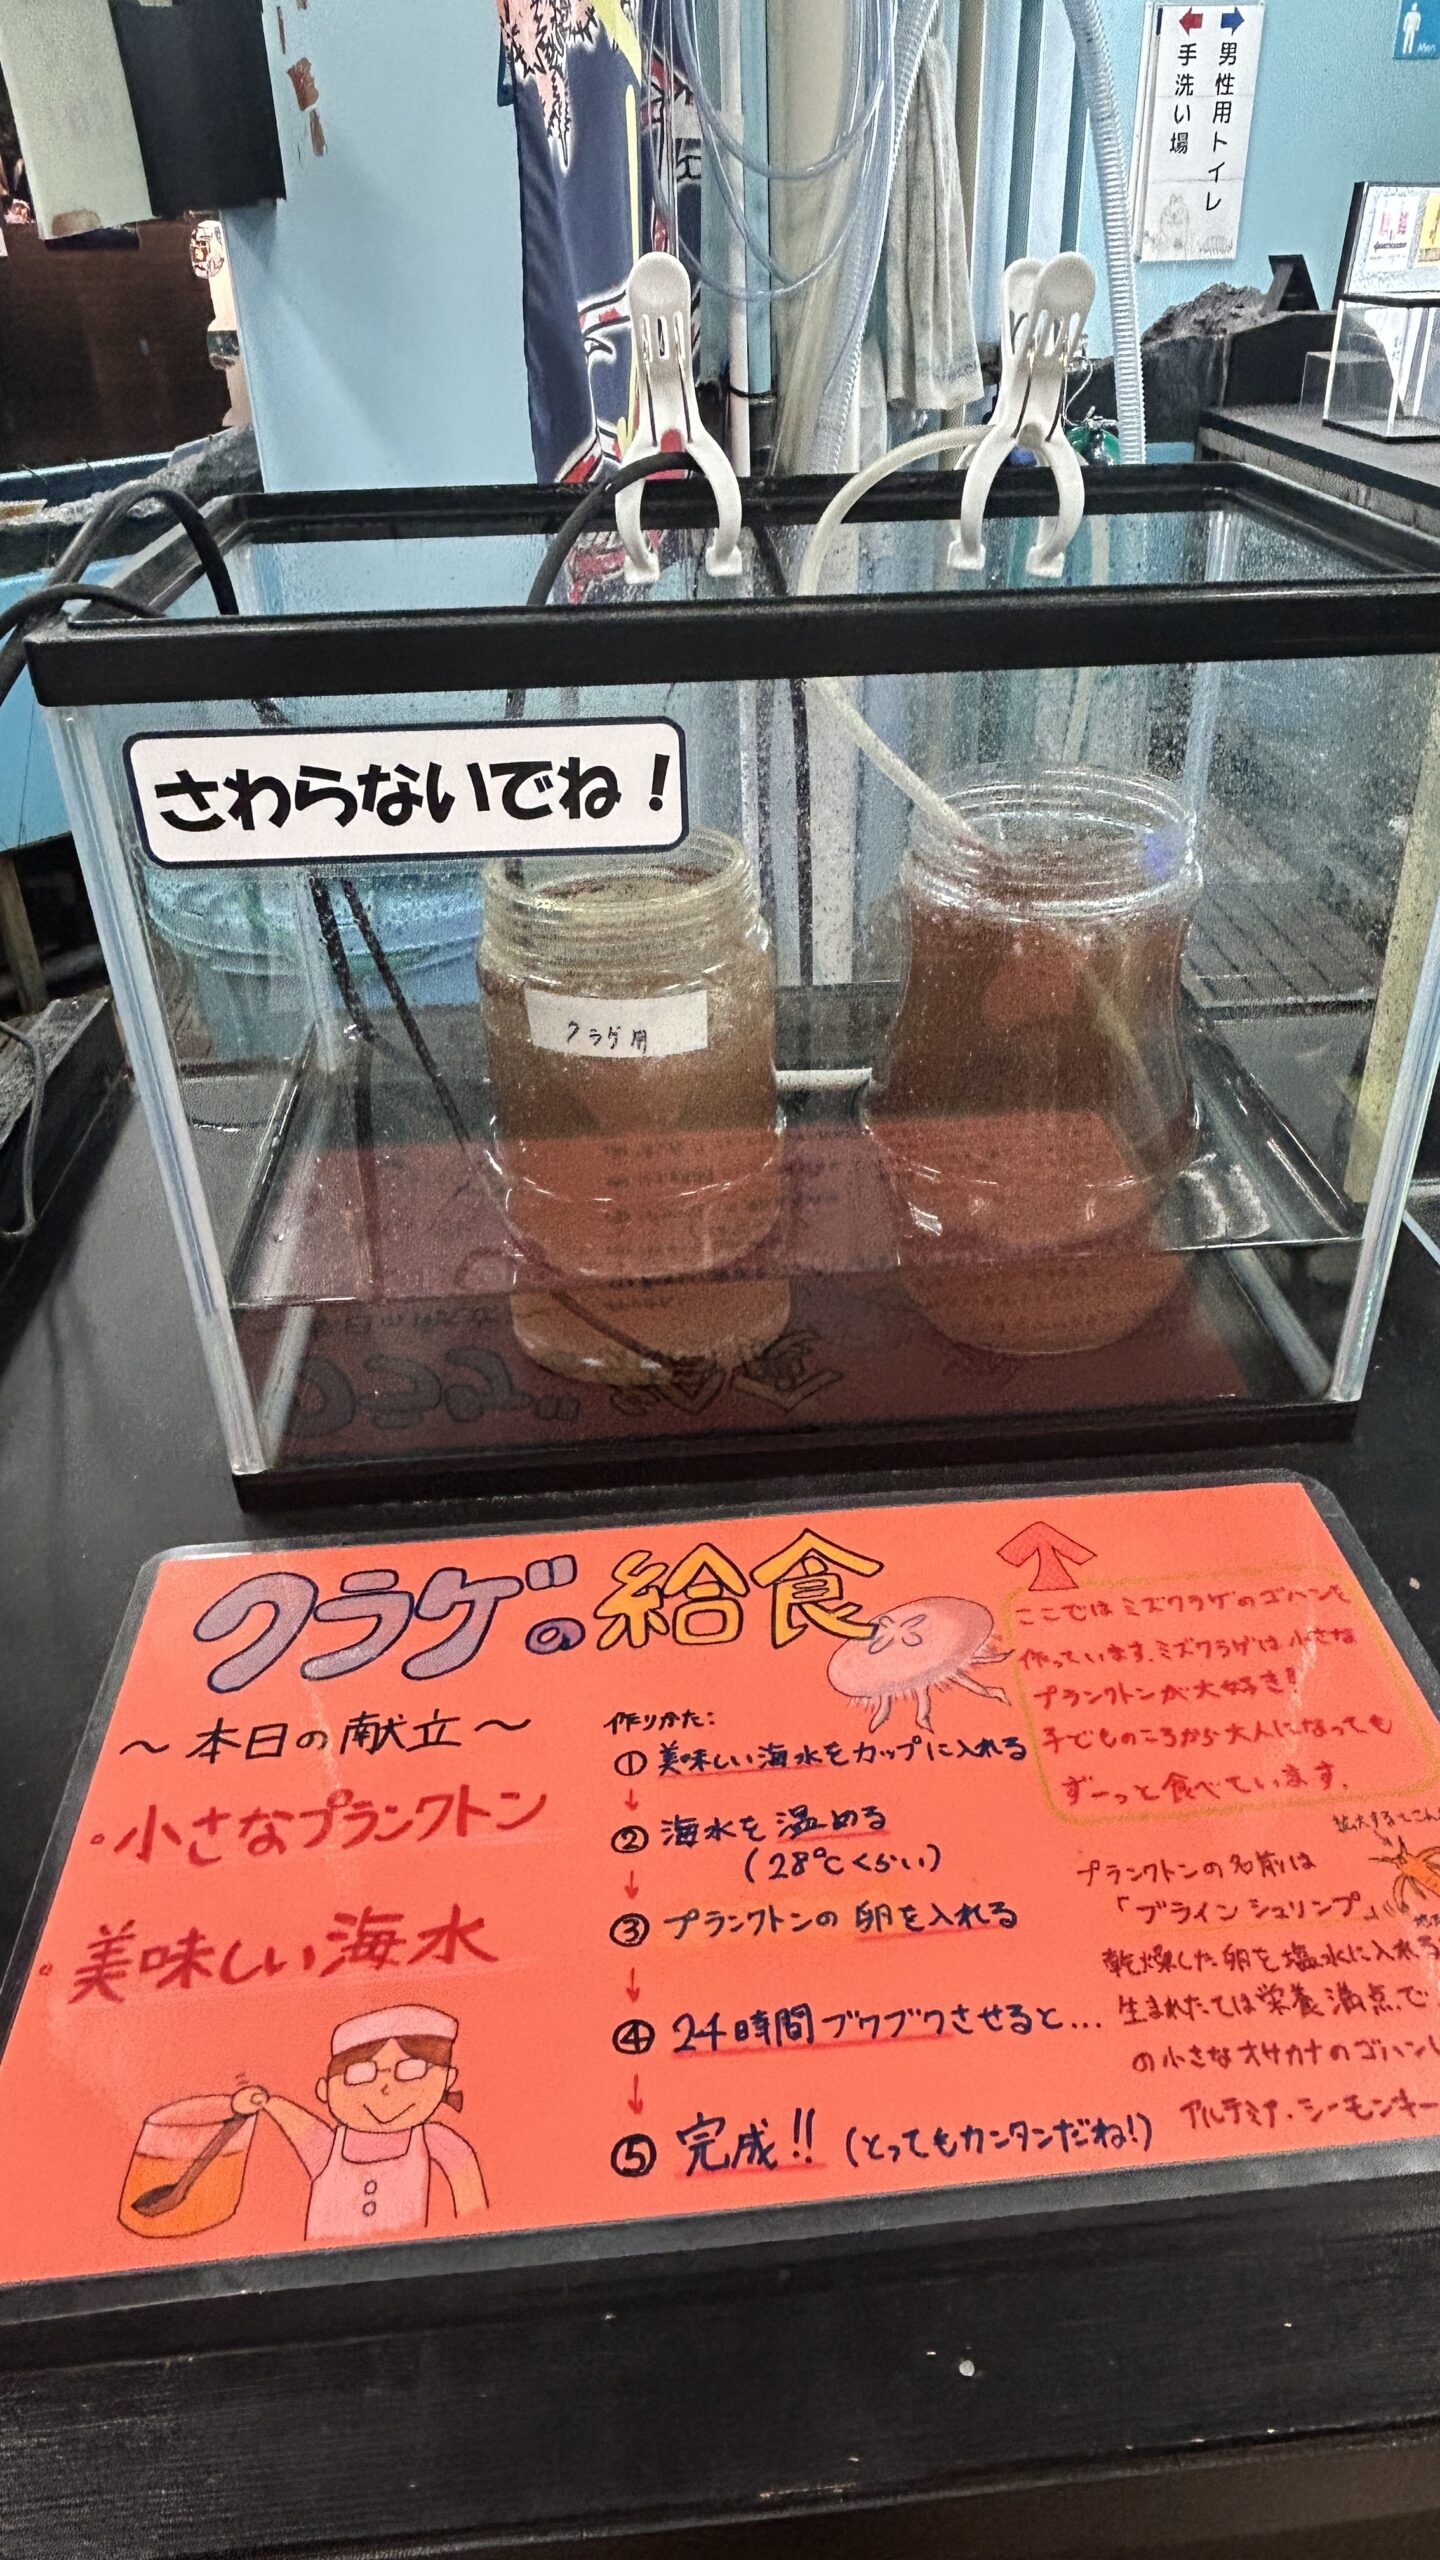 男性用トイレ
手洗い場
Men
さわらないでね！
クラゲ用
クラゲの給食
～本日の献立～
・小さなプランクトン
・美味しい海水
作りかた：
①美味しい海水をカップに入れる
↓
②海水を温める
（28℃くらい）
↓
③プランクトンの卵を入れる
↓
④24時間ブクブクさせると…
↓
⑤完成!!（とってもカンタンだね!）
ここではミズクラゲのゴハンを
作っています。ミズクラゲは小さな
プランクトンが大好き!
子どものころから大人になっても
ずーっと食べています。
拡大するとこん
プランクトンの名前は
「ブラインシュリンプ」
乾燥した卵を塩水に入れる
生まれたては栄養満点で
の小さなオサカナのゴハン
アルテミア・シーモンキー